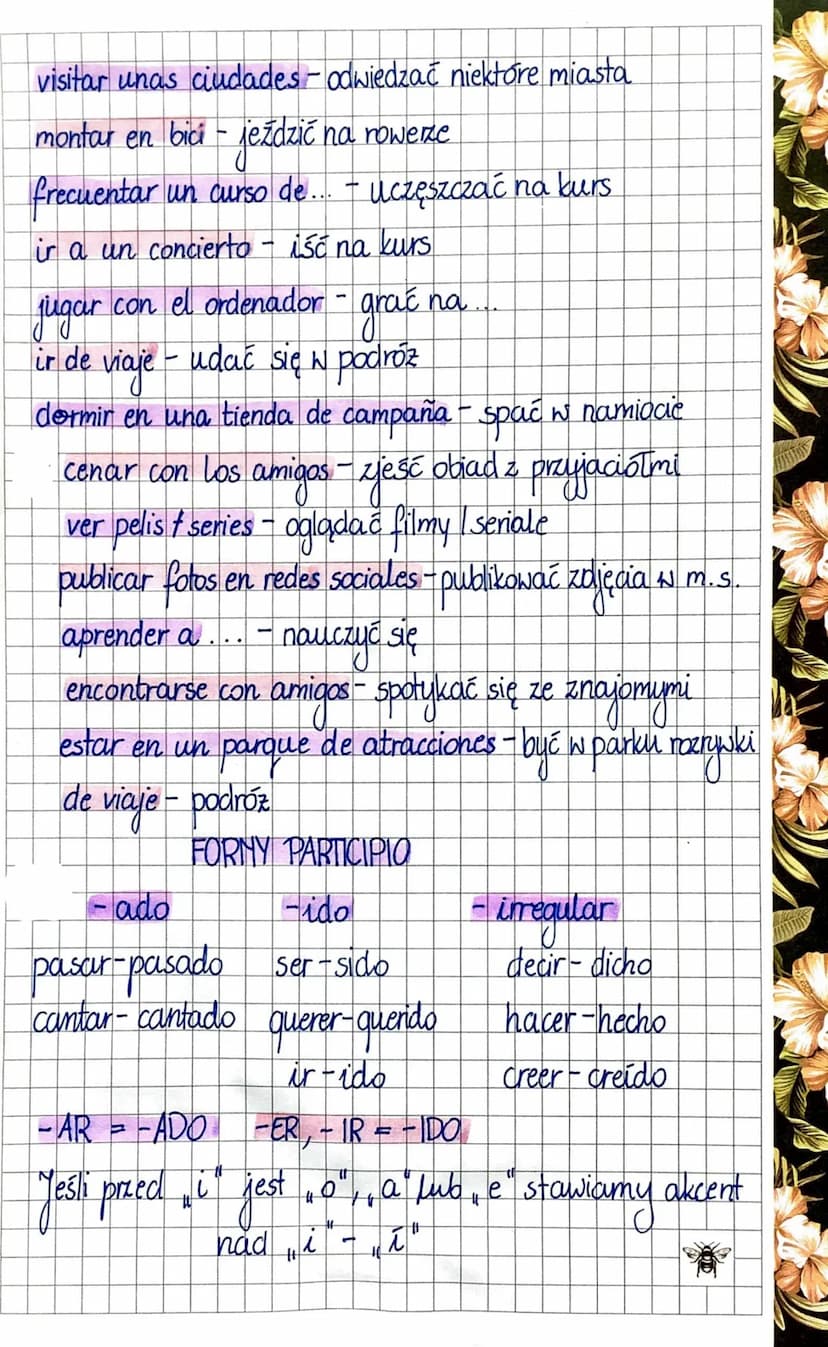 visitar unas ciudades - odwiedzać niektóre miasta
montar en bici - jeździć na rowerze
frecuentar un curso de... - uczęszczać na kurs
ir a un concierto - iść na kurs
jugar con el ordenador - grać na...
ir de viaje - udać się w podróż
dormir en una tienda de campaña - spać w namiocie
cenar con los amigos - zjeść obiad z przyjaciółmi
ver pelis / series - oglądać filmy / seriale
publicar fotos en redes sociales - publikować zdjęcia w m.s.
aprender a ... - nauczyć się
encontrarse con amigos - spotykać się ze znajomymi
estar en un parque de atracciones - być w parku rozrywki
de viaje - podróż
FORMY PARTICIPIO
-ado -ido - irregular
pasar-pasado ser-sido decir-dicho
cantar-cantado querer-querido hacer-hecho
ir-ido creer-creído
-AR = -ADO -ER, -IR = -IDO
Jeśli przed „i" jest „o", „a" lub „e" stawiamy akcent
nad „i" - „í"